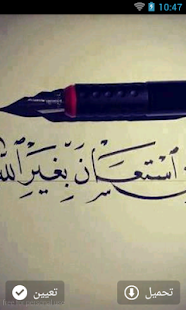 10:47
استعان بغير الله
تعيين
تحميل